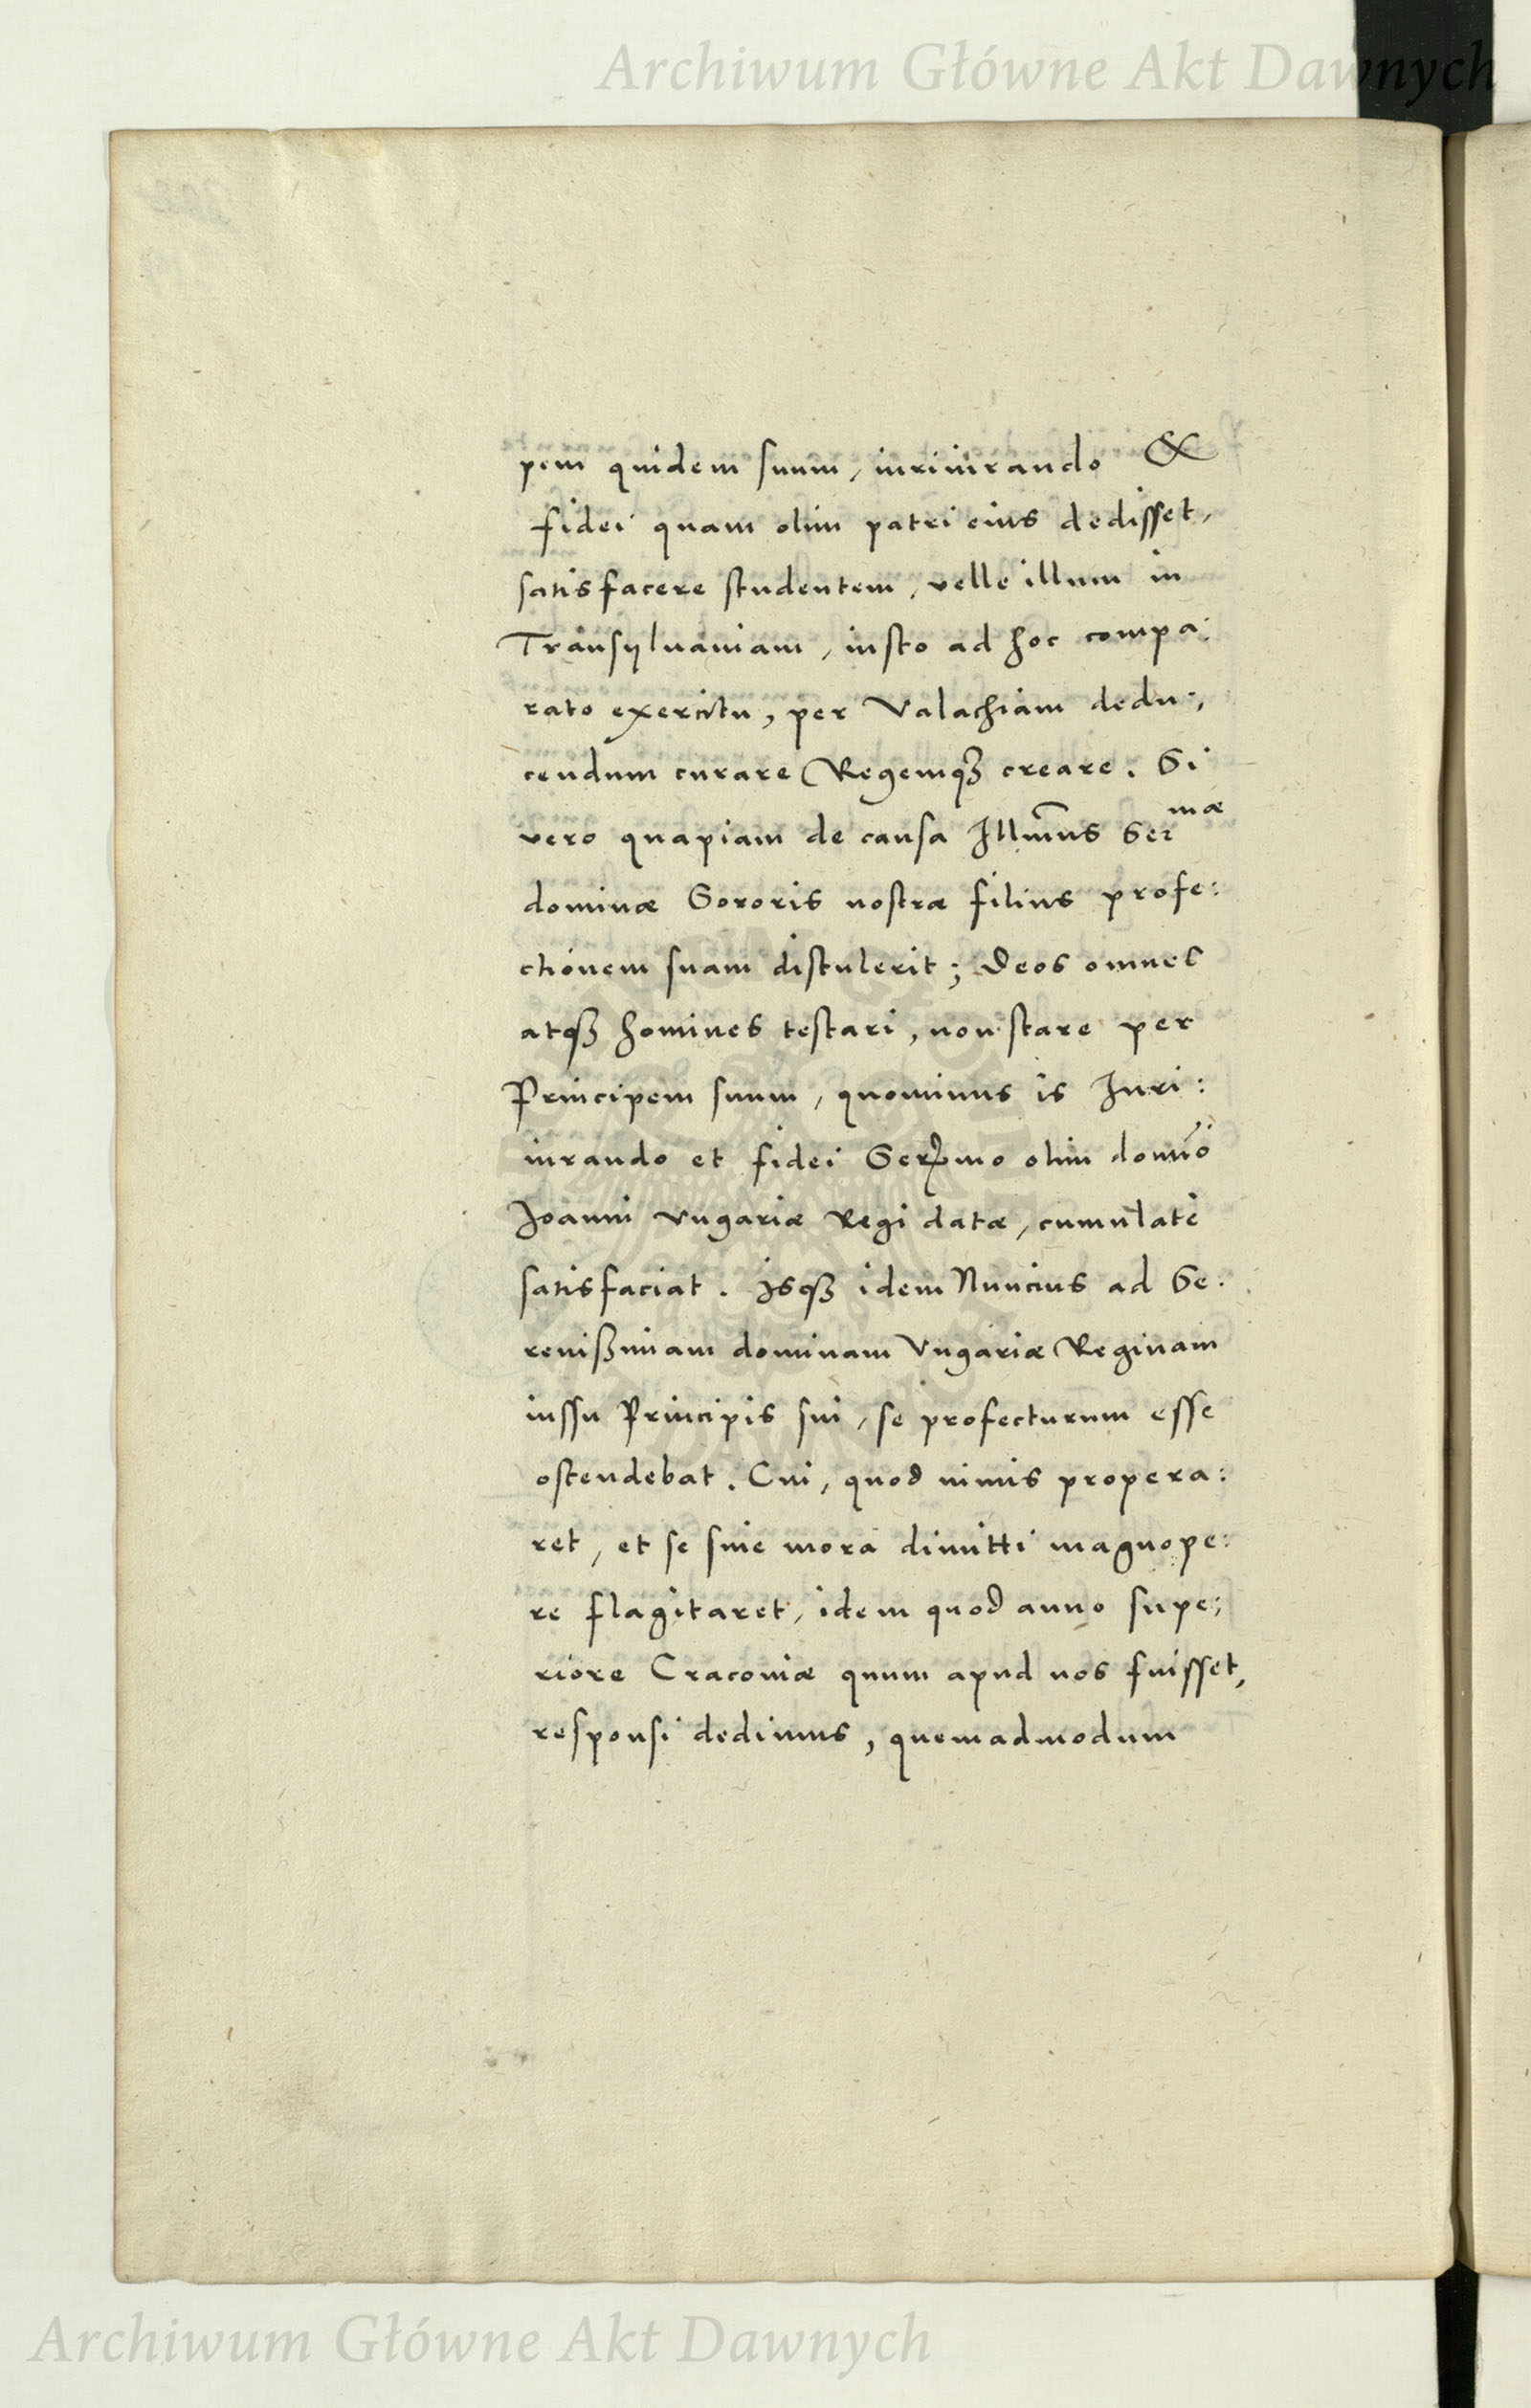 Archiwum Główne Akt Dawnych
pem quidem suum, iuriiurando &
fidei quam olim patri eius dedisset,
satisfacere studentem, velle illum in
Transylvaniam, iusto ad hoc compa:
rato exercitu, per Valachiam dedu:,
cendum curare Regemqʒ creare. Si
vero quapiam de causa Illm̃us Serᵐᵃᵉ
dominæ Sororis nostræ filius profe:
ctionem suam distulerit; Deos omnes
atqʒ homines testari, non stare per
Principem suum, quominus is Iuri:
iurando et fidei Serꝫmo olim domño
Joanni Vngariæ Regi datæ, cumulate
satisfaciat. Isqʒ idem Nuncius ad Se:
renißimam dominam Vngariæ Reginam
iussu Principis sui, se profecturum esse
ostendebat. Cui, quod nimis propera:
ret, et se sine mora dimitti magnope:
re flagitaret, idem quod anno supe:,
riore Cracoviæ quum apud nos fuisset,
responsi dedimus, quemadmodum
Archiwum Główne Akt Dawnych